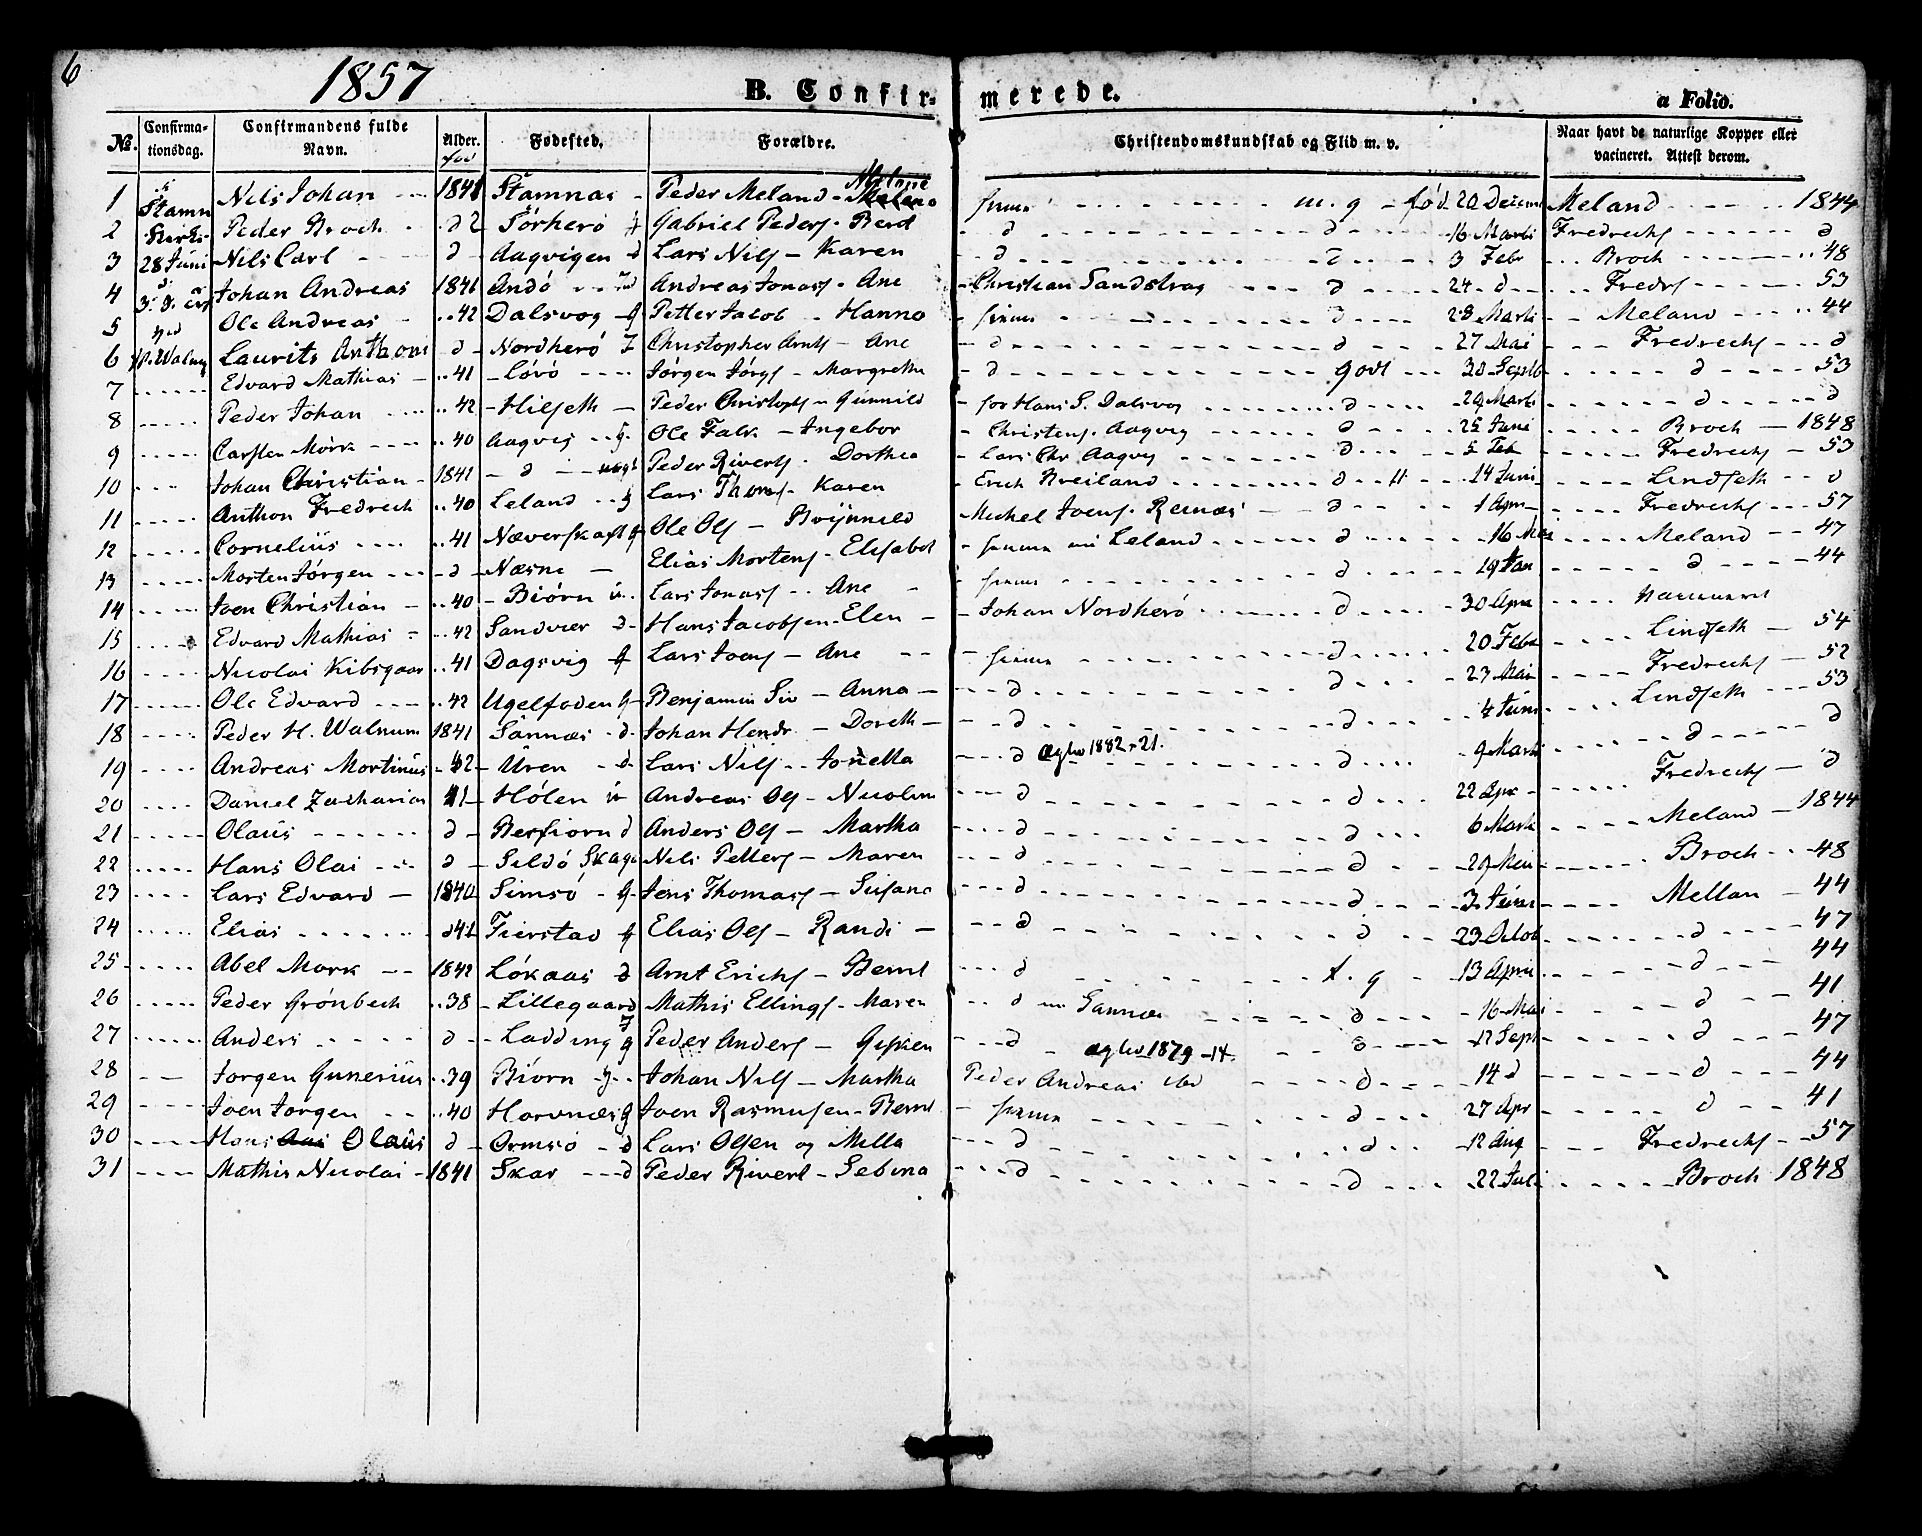 6
1857
B. Confir-
merede.
a Folio.
No.
Confirma-
tionsdag.
Confirmandens fulde
Navn.
Alder.
fød
Fødested.
Forældre.
Christendomskundskab og Flid m. v.
Naar havt de naturlige Kopper eller
vacineret. Attest derom.
1 Stamn Nils Johan 1841 Stamnas - Peder Meland - Malena m. g - fød 20 Decem Meland 1844
2 Kirke Peder Broch d 2 Sörherö Gabriel Peders. Berit d d 16 Marti Fredrechs d
3 28 Juni Nils Carl d Aagvigen d Lars Nils - Karen d d 3 Febr Broch 48
4 Johan Andreas 1841 Andö Andreas Jonass - Ane Christian Sandstrag d 24 d Fredrs 53
5 Ole Andreas 42 Dalsvog Petter Jacob - Hanna d 28 Marti Meland 44
6 Laurits Anthon d Nordherö Christopher Arnts - Ane d d 27 Mai Fredrechs d
7 Edvard Mathias 41 Lövö Jörgen Jörgs - Margrethe d godt 30 Septb d 53
8 Peder Johan 42 Hilseth Peder Christophs - Gunnild for Hans S. Dalsvog d 29 Marti d d
9 Carsten Mörk 40 Aagvig Ole Falk - Ingebor Christens. Aagvig d 25 Juni Broch 1848
10 Johan Christian 1841 d Peder Riverts. Dorthea Lars Chr Aagvig d 5 Feb Fredrechs 53
11 Anthon Fredrech 40 Leland Lars Thoms - Karen Erich Breiland d 14 Juni Lindseth d
12 Cornelius 41 Næverskaft Ole Ols - Brynnild Michel Joens. Reknæs d 1 Apr Fredrechs 57
13 Morten Jörgen d Næsne Elias Mortens - Elisabet Leland d 16 Mai Meland 47
14 Joen Christian 40 Biörn Lars Jonass - Ane d 19 Jan d 44
15 Edvard Mathias 42 Sandvær d Hans Jacobsen - Elen Johan Nordherö d 30 Apr
16 Nicolai Kibsgaar 41 Dagsvig Lars Joens - Ane d 20 Febr Lindseth 54
17 Ole Edvard 42 Ugelfoden Benjamin Siv - Anna d d 23 Mai Fredrechs 52
18 Peder H. Walnum 1841 Sannæs d Johan Hendr - Doreth d d 4 Juni Lindseth 53
19 Andreas Mortinus 42 Uren d Lars Nils - Jonetta d 1882 - 21. d 9 Marti d d
20 Daniel Zacharias 41 Hölen Andreas Ols - Nicolin d d 22 Apr Fredrechs d
21 Olaus d Berfiorn d Anders Ols - Martha d d 6 Marti Meland 1844
22 Hans Olai d Sildö Skaga Nils Petters - Maren d d 29 Mai Broch 48
23 Lars Edvard 1840 Simsö Jens Thomass - Susana d d 3 Juni Mellan 44
24 Elias d 41 Tierstad Elias Ols - Randi d d 23 Octob d 47
25 Abel Mork 1842 Lökaas d Arnt Erichs - Bernt d t. g 13 April d 44
26 Peder Grönbech 38 Lillegaard Mathis Ellings - Maren d Sannæs d 16 Mai d 41
27 Anders d Ladding Peder Anders - Gisken d 1879 - 14. d 17 Sept d 47
28 Jorgen Gunerius 39 Biorn Johan Nils - Martha Peder Andreas d 14 d d 44
29 Joen Jorgen 40 Horvnæs Joen Rasmusen - Bernt d 27 Apr d 41
30 Hans Olaus d Ormsö d Lars Olsen og Mella d d 12 Aug Fredrechs 57
31 Mathis Nicolai 1841 Skar d Peder Rivert - Sebina d d 22 Juli Broch 1848